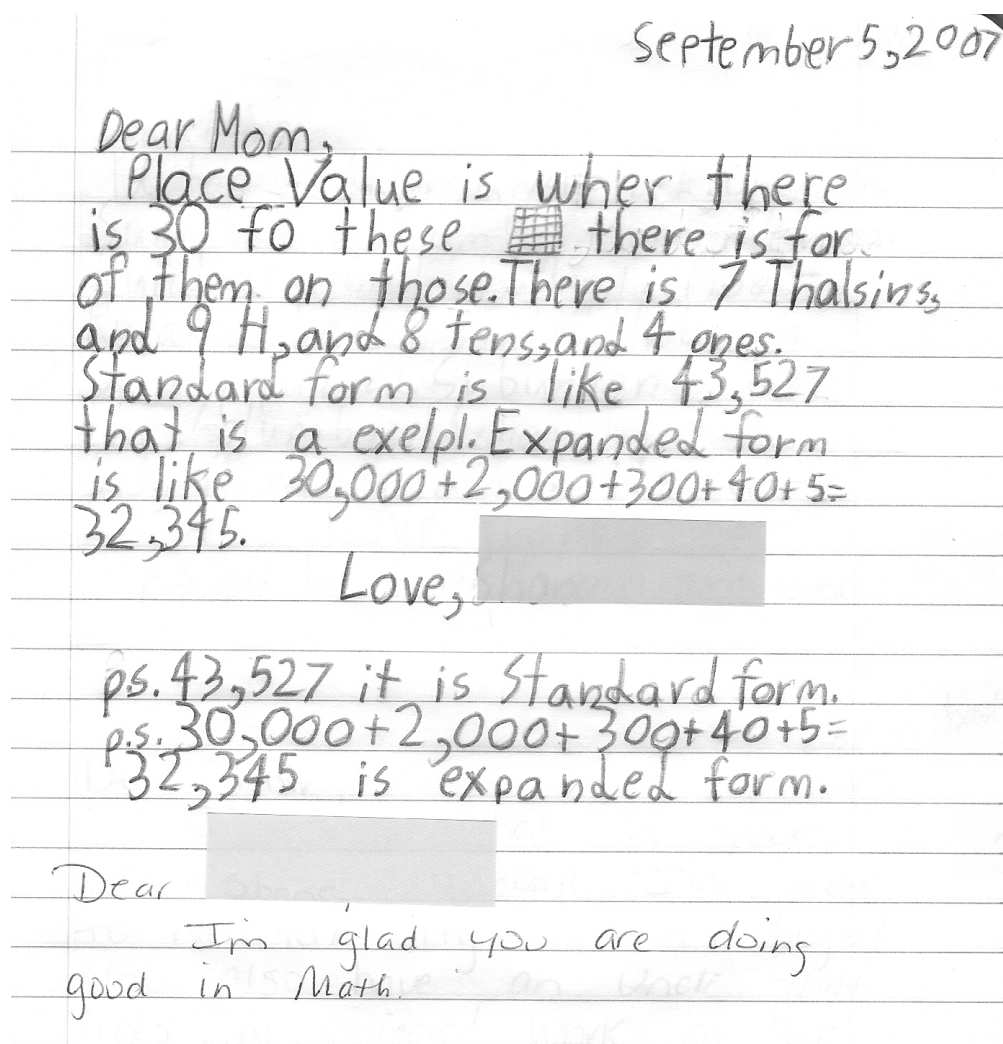 September 5, 2007
Dear Mom,
Place Value is wher there
is 30 fo these there is for
of them on those. There is 7 Thalsins,
and 9 H, and 8 tens, and 4 ones.
Standard form is like 43,527
that is a exelpl. Expanded form
is like 30,000+2,000+300+40+5=
32,345.
Love,
ps. 43,527 it is Standard form.
p.s. 30,000+2,000+300+40+5=
32,345 is expanded form.
Dear
I'm glad you are doing
good in Math.